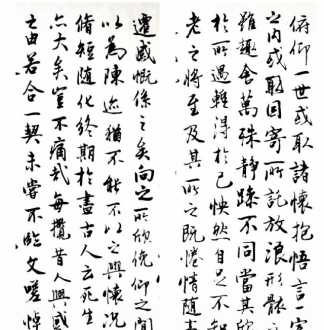 俯仰一世或取諸懷抱悟言一室
之内或取因寄所託放浪形骸之
雖趣舍萬殊靜躁不同當其欣
於所遇蹔得於己怏然自足不知
老之將至及其所之既惓情隨事
遷感慨係之矣向之所欣俛仰之間
以為陳迹猶不能不以之興懷況
脩短隨化終期於盡古人云死生
亦大矣豈不痛哉每攬昔人興感
之由若合一契未嘗不臨文嗟悼